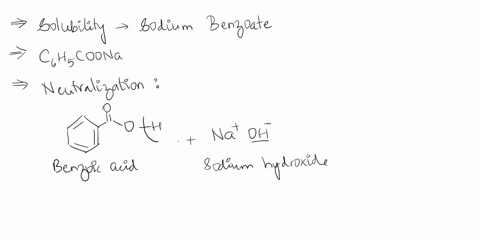 ⇒ Solubility → Sodium Benzoate
⇒ C₆H₅COONa
⇒ Neutralization :
O
O H + Na⁺ OH⁻
Benzoic acid Sodium hydroxide